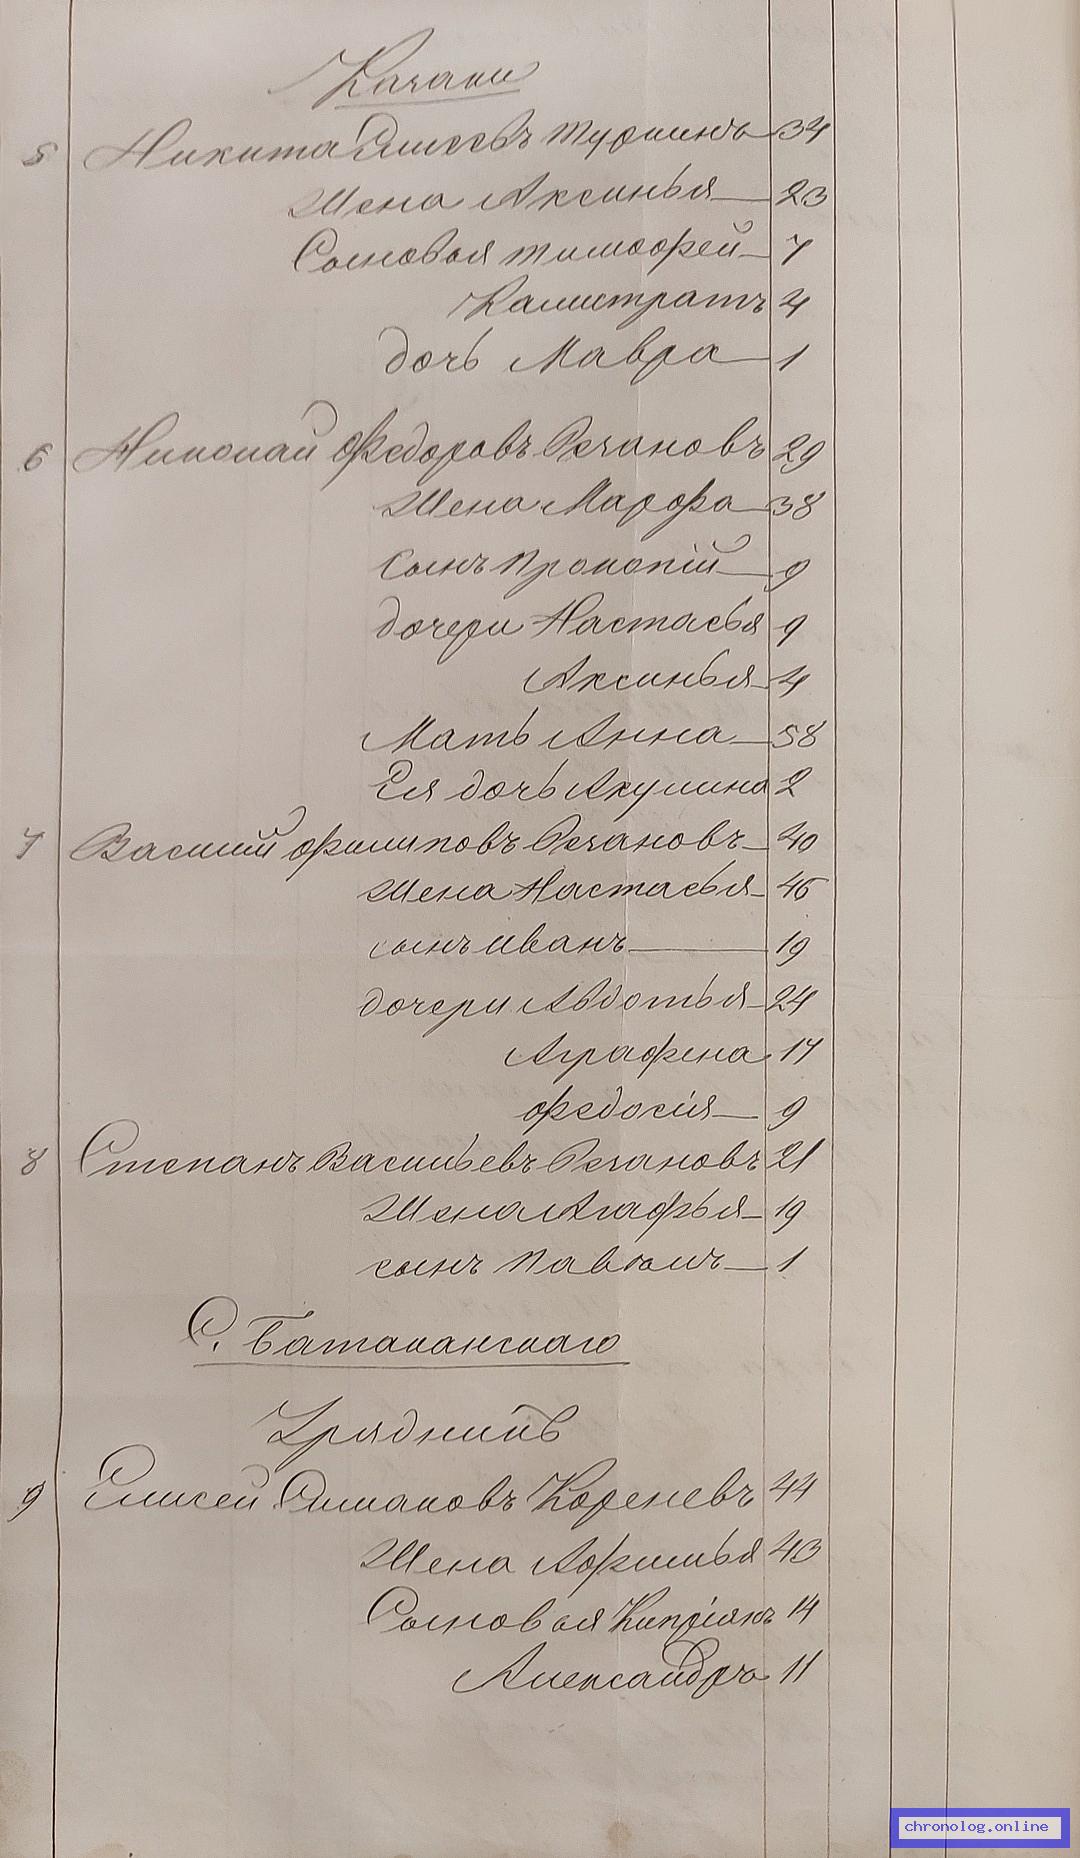 Казаки
5 Никита Елисеевъ Туринъ 34
Жена Аксинья 23
Сыновья Тимофей 7
Калистратъ 4
дочь Мавра 1
6 Николай Федоровъ Резановъ 29
Жена Марфа 38
Сынъ Прокопій 9
дочери Настасья 9
Аксинья 4
Мать Анна 58
Ея дочь Акулина 2
7 Василий Филиповъ Резановъ 40
Жена Настасья 45
сынъ Иванъ 19
дочери Авдотья 24
Аграфена 17
Федосія 9
8 Степанъ Васильевъ Резановъ 21
Жена Агафья 19
сынъ Павелъ 1
С. Батаканскаго
Урядникъ
9 Елисей Кореневъ 44
Жена Афимья 43
Сыновья Кипріянъ 14
Александръ 11
chronolog.online